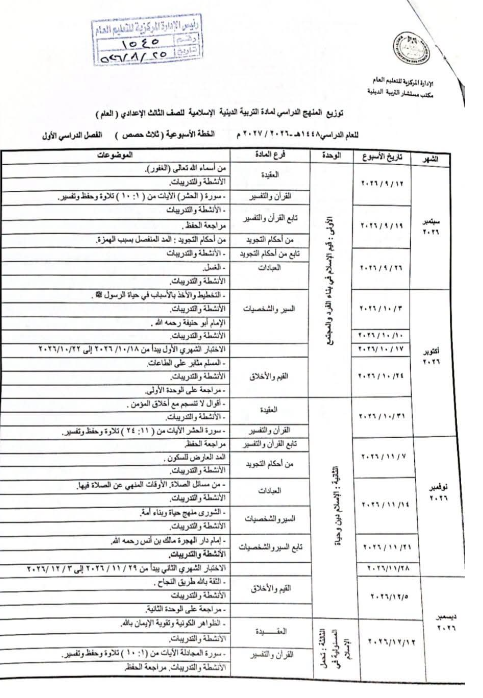 رئيس الإدارة المركزية للتعليم العام
رقم ١٠٤٥
تاريخ
الإدارة المركزية للتعليم العام
مكتب مستشار التربية الدينية
توزيع المنهج الدراسي لمادة التربية الدينية الإسلامية للصف الثالث الإعدادي ( العام )
للعام الدراسي ١٤٤٨هـ - ٢٠٢٦ / ٢٠٢٧ م الخطة الأسبوعية ( ثلاث حصص ) الفصل الدراسي الأول
الشهر تاريخ الأسبوع الوحدة فرع المادة الموضوعات
سبتمبر ٢٠٢٦
٢٠٢٦/٩/١٢
الأولى : قيم الإسلام في بناء الفرد والمجتمع
العقيدة
من أسماء الله تعالى (الغفور).
الأنشطة والتدريبات.
القرآن والتفسير
- سورة ( الحشر) الآيات من ( ١ : ١٠ ) تلاوة وحفظ وتفسير.
٢٠٢٦/٩/١٩
تابع القرآن والتفسير
- الأنشطة والتدريبات
مراجعة الحفظ.
من أحكام التجويد
- من أحكام التجويد : المد المنفصل بسبب الهمزة.
٢٠٢٦/٩/٢٦
تابع من أحكام التجويد
- الأنشطة والتدريبات
العبادات
- الغسل.
الأنشطة والتدريبات.
أكتوبر ٢٠٢٦
٢٠٢٦/١٠/٣
السير والشخصيات
- التخطيط والأخذ بالأسباب في حياة الرسول ﷺ .
الأنشطة والتدريبات.
الإمام أبو حنيفة رحمه الله .
٢٠٢٦/١٠/١٠
الأنشطة والتدريبات.
٢٠٢٦/١٠/١٧
الاختبار الشهري الأول يبدأ من ٢٠٢٦/١٠/١٨ إلى ٢٠٢٦/١٠/٢٢
٢٠٢٦/١٠/٢٤
القيم والأخلاق
- المسلم مثابر على الطاعات.
الأنشطة والتدريبات.
- مراجعة على الوحدة الأولى.
٢٠٢٦/١٠/٣١
الثانية : الإسلام دين وحياة
العقيدة
- أقوال لا تنسجم مع أخلاق المؤمن .
- الأنشطة والتدريبات.
القرآن والتفسير
- سورة الحشر الآيات من ( ١١ : ٢٤ ) تلاوة وحفظ وتفسير.
نوفمبر ٢٠٢٦
٢٠٢٦/١١/٧
تابع القرآن والتفسير
مراجعة الحفظ.
من أحكام التجويد
المد العارض للسكون .
الأنشطة والتدريبات.
العبادات
- من مسائل الصلاة الأوقات المنهي عن الصلاة فيها.
٢٠٢٦/١١/١٤
الأنشطة والتدريبات.
السير والشخصيات
- الشورى منهج حياة وبناء أمة.
الأنشطة والتدريبات.
٢٠٢٦/١١/٢١
تابع السير والشخصيات
- إمام دار الهجرة مالك بن أنس رحمه الله.
الأنشطة والتدريبات.
٢٠٢٦/١١/٢٨
الاختبار الشهري الثاني يبدأ من ٢٠٢٦/١١/٢٩ إلى ٢٠٢٦/١٢/٣
ديسمبر ٢٠٢٦
٢٠٢٦/١٢/٥
القيم والأخلاق
- الثقة بالله طريق النجاح .
- الأنشطة والتدريبات.
- مراجعة على الوحدة الثانية.
٢٠٢٦/١٢/١٢
الثالثة : تحمل المسئولية في الإسلام
العقـيـدة
- الظواهر الكونية وتقوية الإيمان بالله.
الأنشطة والتدريبات.
القرآن والتفسير
- سورة المجادلة الآيات من (١ : ١٠ ) تلاوة وحفظ وتفسير.
الأنشطة والتدريبات. مراجعة الحفظ.